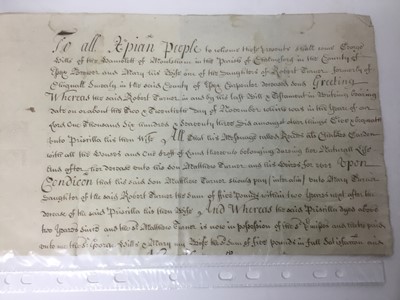 To all Xpian People to whome these presents shall come George
Wills of the Hamblett of Moulsham in the Parish of Chelmsford in the County of
Essex and Mary his Wife one of the Daughters of Robert Turner formerly of
Chignall Smealy in the said County of Essex Carpenter deceased send Greeting
Whereas the said Robert Turner in and by his last Will & Testament in Writing bearing
date on or about the Two & Twentieth day of November which was in the Yeare of our
Lord One Thousand Six Hundred & Seaventy three Did amongst other things Give & bequeath
unto Priscilla his then Wife All that his Messuage with
with all the Houses and out Croft of Land thereto belonging during her Naturall Life
and after her decease unto his son Matthew Turner and his Heires for ever Upon
Condicon that his said son Matthew Turner should pay (inter alia) unto Mary Turner
Daughter of the said Robert Turner the sum of five Pounds within two Yeares next after the
decease of the said Priscilla his then Wife And Whereas the said Priscilla dyed above
two Yeares since and the sd Matthew Turner is now in possession of the sd and hath paid
unto me the sd George Wills & Mary my Wife the sum of five Pounds in full